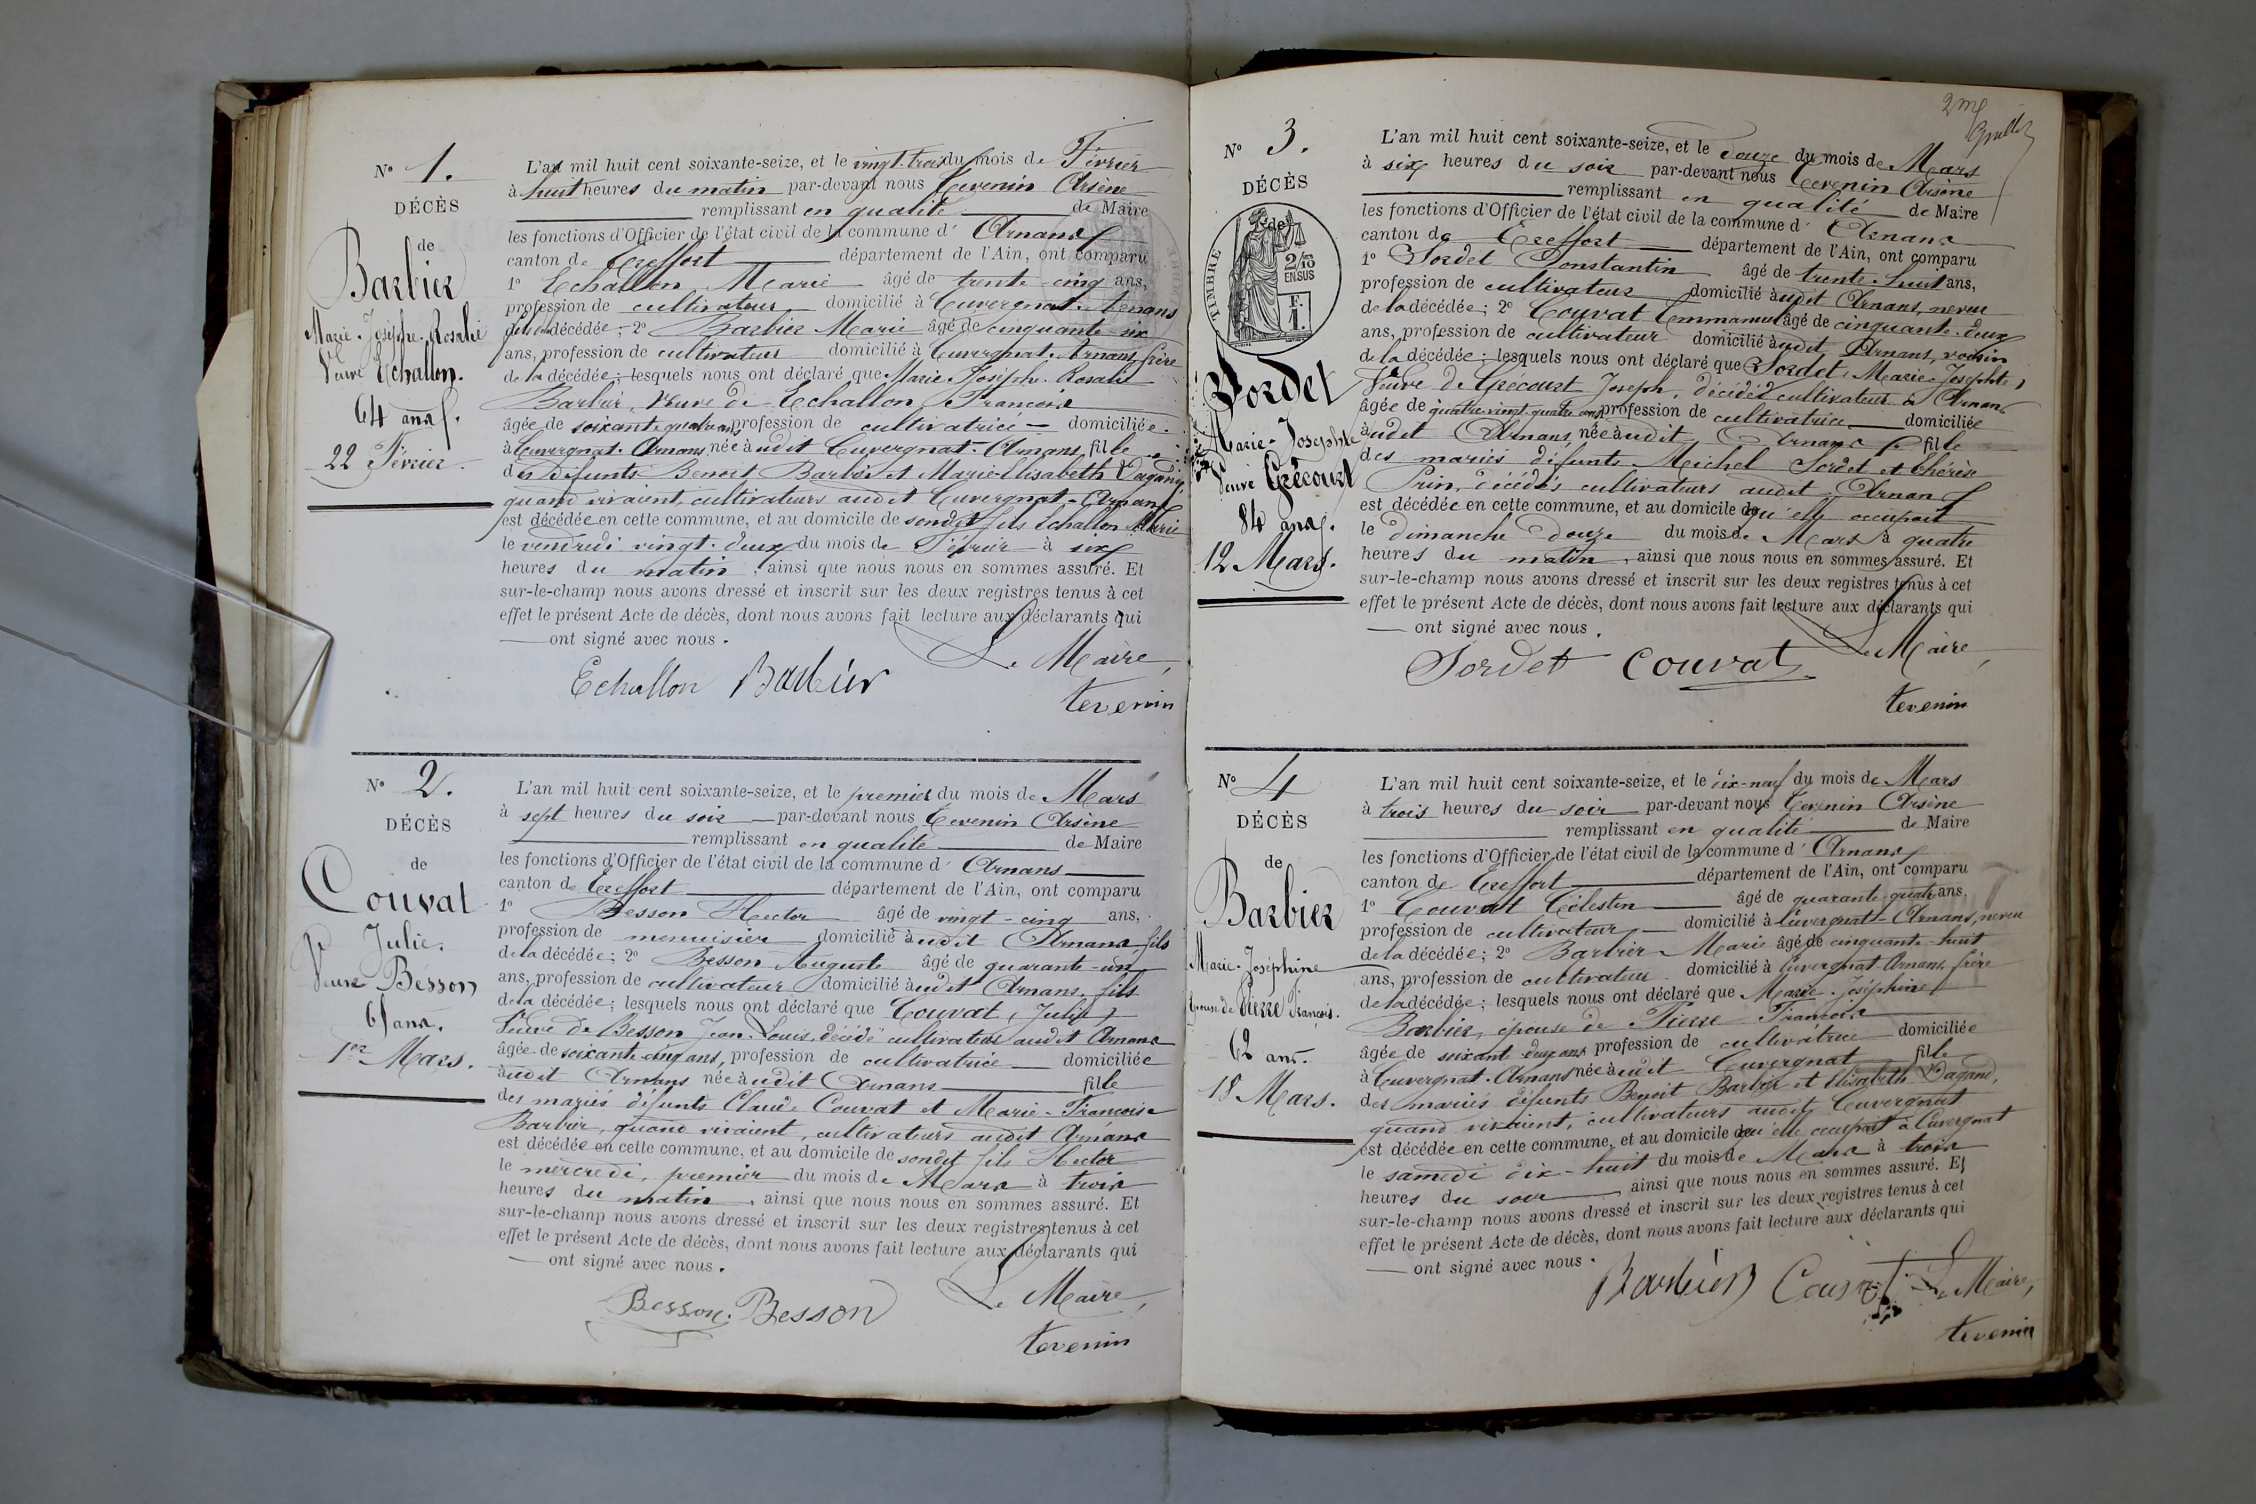 N° 1.
DÉCÈS
de
Barbier
Marie-Josephe-Rosalie
Veuve Echallon.
64 ans.
22 Février.
L'an mil huit cent soixante-seize, et le vingt-trois du mois de Février
à huit heures du matin par-devant nous Tevenin Arsène
remplissant en qualité de Maire
les fonctions d'Officier de l'état civil de la commune d' Arnans
canton de Treffort département de l'Ain, ont comparu
1° Echallon Marie âgé de trente-cinq ans,
profession de cultivateur domicilié à Cuvergnat-Arnans
fils de la décédée; 2° Barbier Marie âgé de cinquante-six
ans, profession de cultivateur domicilié à Cuvergnat-Arnans, frère
de la décédée; lesquels nous ont déclaré que Marie Josephe-Rosalie
Barbier, Veuve de Echallon François
âgée de soixante quatre ans profession de cultivatrice domiciliée
à Cuvergnat-Arnans née audit Cuvergnat-Arnans, fille
des Défunts Benoit Barbier et Marie-Elisabeth Dagand,
quand vivaient, cultivateurs audit Cuvergnat-Arnans
est décédée en cette commune, et au domicile de sondit fils Echallon Marie
le vendredi vingt-deux du mois de Février à six
heures du matin, ainsi que nous nous en sommes assuré. Et
sur-le-champ nous avons dressé et inscrit sur les deux registres tenus à cet
effet le présent Acte de décès, dont nous avons fait lecture aux déclarants qui
ont signé avec nous.
Echallon Barbier Le Maire,
tevenin
N° 2.
DÉCÈS
de
Couvat
Julie.
Veuve Besson
65 ans.
1er Mars.
L'an mil huit cent soixante-seize, et le premier du mois de Mars
à sept heures du soir par-devant nous Tevenin Arsène
remplissant en qualité de Maire
les fonctions d'Officier de l'état civil de la commune d' Arnans
canton de Treffort département de l'Ain, ont comparu
1° Besson Hector âgé de vingt-cinq ans,
profession de menuisier domicilié audit Arnans fils
de la décédée; 2° Besson Auguste âgé de quarante-un
ans, profession de cultivateur domicilié audit Arnans, fils
de la décédée; lesquels nous ont déclaré que Couvat, Julie,
Veuve de Besson Jean-Louis, décédé cultivateur audit Arnans
âgée de soixante-cinq ans, profession de cultivatrice domiciliée
audit Arnans née audit Arnans fille
des mariés défunts Claude Couvat et Marie-Françoise
Barbier, quand vivaient, cultivateurs audit Arnans
est décédée en cette commune, et au domicile de sondit fils Hector
le mercredi, premier du mois de Mars à trois
heures du matin, ainsi que nous nous en sommes assuré. Et
sur-le-champ nous avons dressé et inscrit sur les deux registres tenus à cet
effet le présent Acte de décès, dont nous avons fait lecture aux déclarants qui
ont signé avec nous.
Besson. Besson Le Maire,
tevenin
2me
N° 3.
DÉCÈS
de
TIMBRE
2/10
EN SUS
F.
1.
Sordet
Marie-Josephte
Veuve Grécourt
84 ans.
12 Mars.
L'an mil huit cent soixante-seize, et le douze du mois de Mars
à six heures du soir par-devant nous Tevenin Arsène
remplissant en qualité de Maire
les fonctions d'Officier de l'état civil de la commune d' Arnans
canton de Treffort département de l'Ain, ont comparu
1° Sordet Constantin âgé de trente-huit ans,
profession de cultivateur domicilié audit Arnans, neveu
de la décédée; 2° Couvat Emmanuel âgé de cinquante-deux
ans, profession de cultivateur domicilié audit Arnans, voisin
de la décédée; lesquels nous ont déclaré que Sordet, Marie-Josephte,
Veuve de Grécourt Joseph, décédé cultivateur à Arnans
âgée de quatre-vingt-quatre ans profession de cultivatrice domiciliée
audit Arnans, née audit Arnans fille
des mariés défunts Michel Sordet et Thérèse
Prin, décédés cultivateurs audit Arnans
est décédée en cette commune, et au domicile qu'elle occupait
le dimanche douze du mois de Mars à quatre
heures du matin, ainsi que nous nous en sommes assuré. Et
sur-le-champ nous avons dressé et inscrit sur les deux registres tenus à cet
effet le présent Acte de décès, dont nous avons fait lecture aux déclarants qui
ont signé avec nous.
Sordet Couvat Le Maire,
tevenin
N° 4
DÉCÈS
de
Barbier
Marie-Joséphine
Epouse de Pierre François.
62 ans.
18 Mars.
L'an mil huit cent soixante-seize, et le dix-neuf du mois de Mars
à trois heures du soir par-devant nous Tevenin Arsène
remplissant en qualité de Maire
les fonctions d'Officier de l'état civil de la commune d' Arnans
canton de Treffort département de l'Ain, ont comparu
1° Couvat Célestin âgé de quarante-quatre ans,
profession de cultivateur domicilié à Cuvergnat-Arnans, neveu
de la décédée; 2° Barbier Marie âgé de cinquante-huit
ans, profession de cultivateur domicilié à Cuvergnat-Arnans, frère
de la décédée; lesquels nous ont déclaré que Marie-Joséphine
Barbier, épouse de Pierre François
âgée de soixante-deux ans profession de cultivatrice domiciliée
à Cuvergnat-Arnans née audit Cuvergnat fille
des mariés défunts Benoit Barbier et Elisabeth Dagand,
quand vivaient, cultivateurs audit Cuvergnat
est décédée en cette commune, et au domicile qu'elle occupait à Cuvergnat
le samedi dix-huit du mois de Mars à trois
heures du soir, ainsi que nous nous en sommes assuré. Et
sur-le-champ nous avons dressé et inscrit sur les deux registres tenus à cet
effet le présent Acte de décès, dont nous avons fait lecture aux déclarants qui
ont signé avec nous.
Barbier Couvat Le Maire,
tevenin